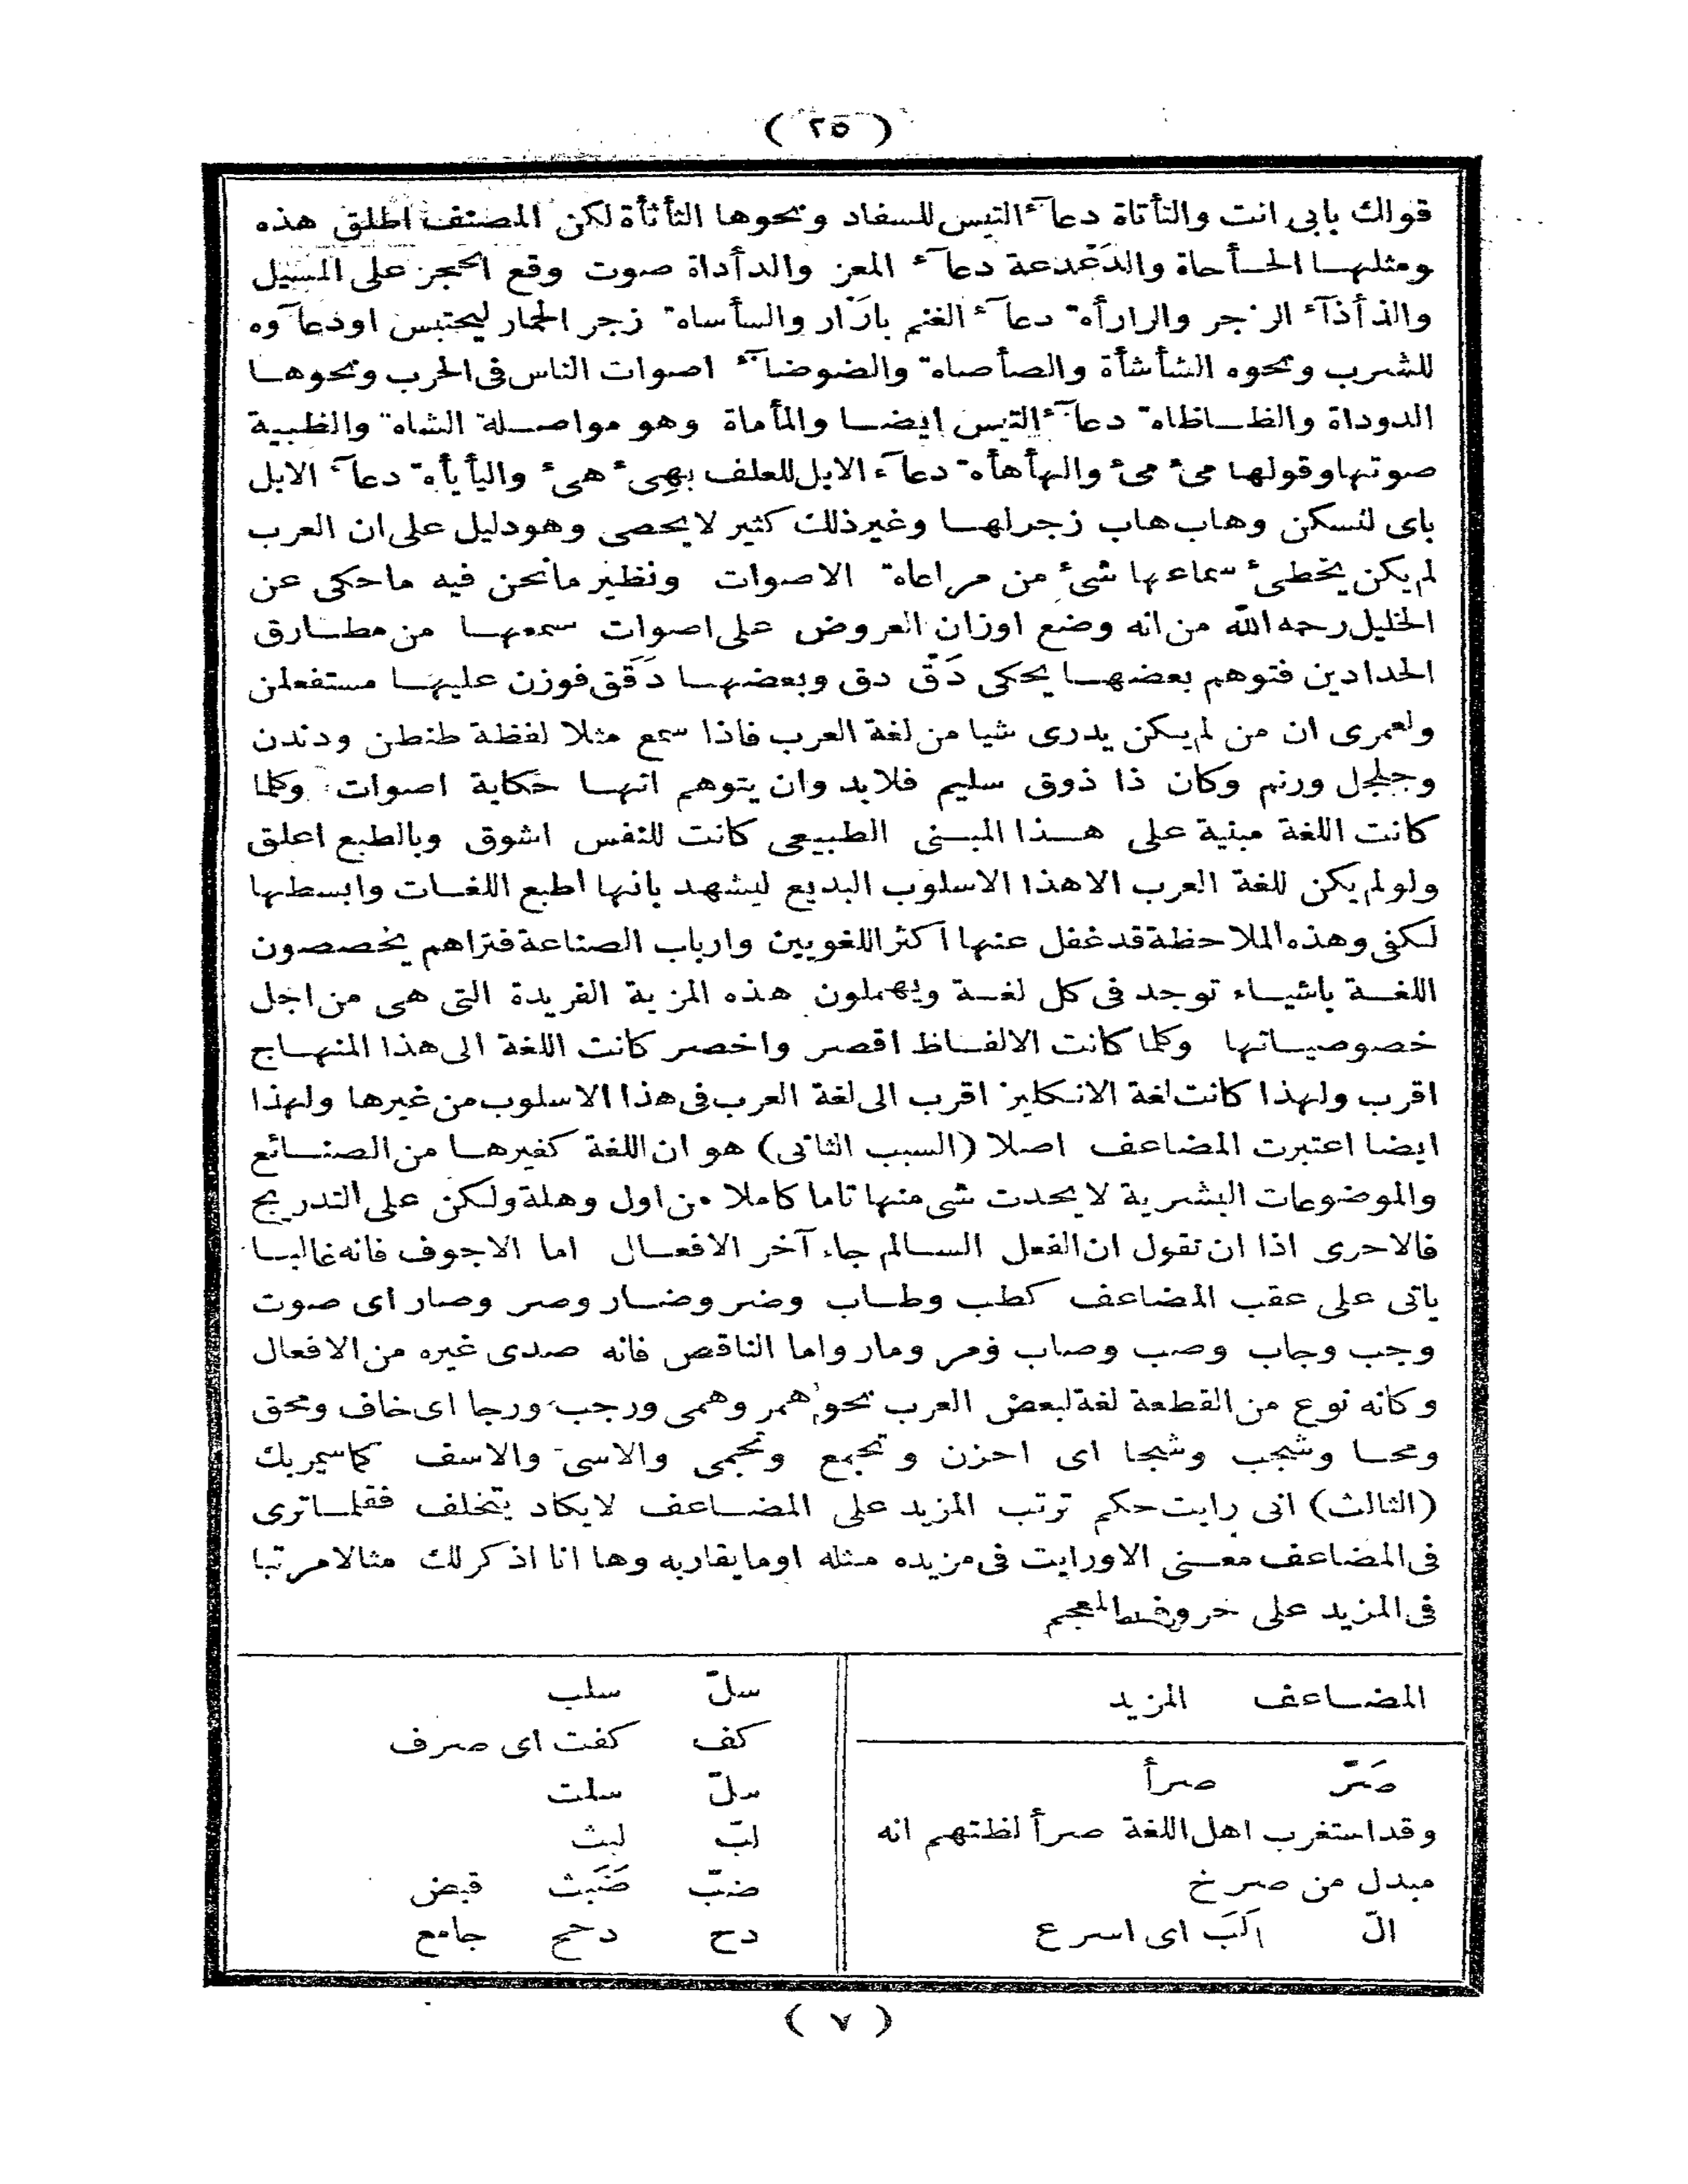 ( ٢٥ )
قولك بابى انت والتأتاة دعآء التيس للسفاد ونحوها الثأثأة لكن المصنف اطلق هذه
ومثلهـا الحـأحاة والدَعْدعة دعآء المعز والدأداة صوت وقع الحجر على المسيل
والذأذآء الزجر والرارأة دعآء الغنم بارَار والسأساة زجر الحمار ليحتبس اودعآوه
للشرب ونحوه الشأشأة والصأصاة والضوضآء اصوات الناس فى الحرب ونحوهـا
الدوداة والظـاظاة دعآء التيس ايضـا والمأماة وهو مواصـلة الشاة والظبية
صوتها وقولها مئ مئ والهأهأة دعآء الابل للعلف بهِئ هئ واليأيأة دعآء الابل
باى لتسكن وهاب هاب زجرلهـا وغيرذلك كثير لايحصى وهودليل على ان العرب
لم يكن يخطئ سماعها شئ من مراعاة الاصوات ونظير مانحن فيه ماحكى عن
الخليل رحمه الله من انه وضع اوزان العروض على اصوات سمعهـا من مطـارق
الحدادين فتوهم بعضهـا يحكى دَقْ دق وبعضهـا دَقَق فوزن عليهـا مستفعلن
ولعمرى ان من لم يكن يدرى شيا من لغة العرب فاذا سمع مثلا لفظة طنطن ودندن
وجلجل ورنم وكان ذا ذوق سليم فلابد وان يتوهم انهـا حكاية اصوات وكلما
كانت اللغة مبنية على هـذا المبـنى الطبيعى كانت للنفس اشوق وبالطبع اعلق
ولولم يكن للغة العرب الاهذا الاسلوب البديع ليشهد بانها اطبع اللغـات وابسطها
لكفى وهذه الملاحظة قدغفل عنها اكثر اللغويين وارباب الصناعة فتراهم يخصصون
اللغـة باشيـاء توجد فى كل لغـة ويهملون هذه المزية الفريدة التى هى من اجل
خصوصيـاتها وكلما كانت الالفـاظ اقصر واخصر كانت اللغة الى هذا المنهـاج
اقرب ولهذا كانت لغة الانكليز اقرب الى لغة العرب فى هذا الاسلوب من غيرها ولهذا
ايضا اعتبرت المضاعف اصلا (السبب الثانى) هو ان اللغة كغيرهـا من الصنـائع
والموضوعات البشرية لايحدث شى منها تاما كاملا من اول وهلة ولكن على التدريج
فالاحرى اذا ان نقول ان الفعل السـالم جاء آخر الافعـال اما الاجوف فانه غالبـا
ياتى على عقب المضاعف كطب وطـاب وضر وضـار وصر وصار اى صوت
وجب وجاب وصب وصاب ومر ومار واما الناقص فانه صدى غيره من الافعال
وكانه نوع من القطعة لغة لبعض العرب نحو همر وهمى ورجب ورجا اى خاف ومحق
ومحـا وشجب وشجا اى احزن وتجمع وتجمى والاسى والاسف كماسيمربك
(الثالث) انى رايت حكم ترتب المزيد على المضـاعف لايكاد يتخلف فقلمـاترى
فى المضاعف معـنى الاورايت فى مزيده مثله اومايقاربه وها انا اذكرلك مثالا مرتبا
فى المزيد على حروف المعجم
المضـاعف المزيد
صَرّ صرأ
وقداستغرب اهل اللغة صرأ لظنهم انه
مبدل من صرخ
الّ اَلَبَ اى اسرع
سلّ سلب
كف كفت اى صرف
سلّ سلت
لبّ لبث
ضبّ ضَبَث قبض
دح دحج جامع
( ٧ )